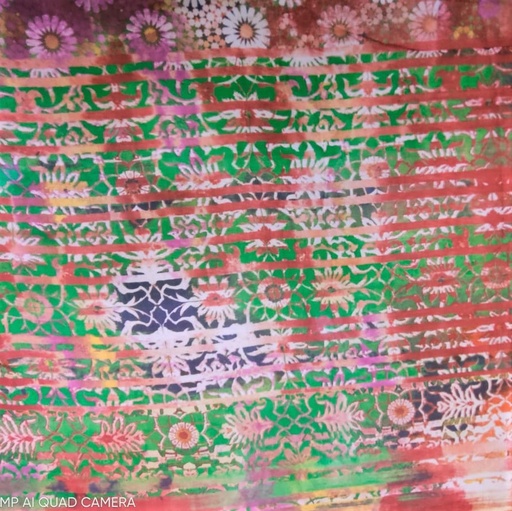 MP AI QUAD CAMERA